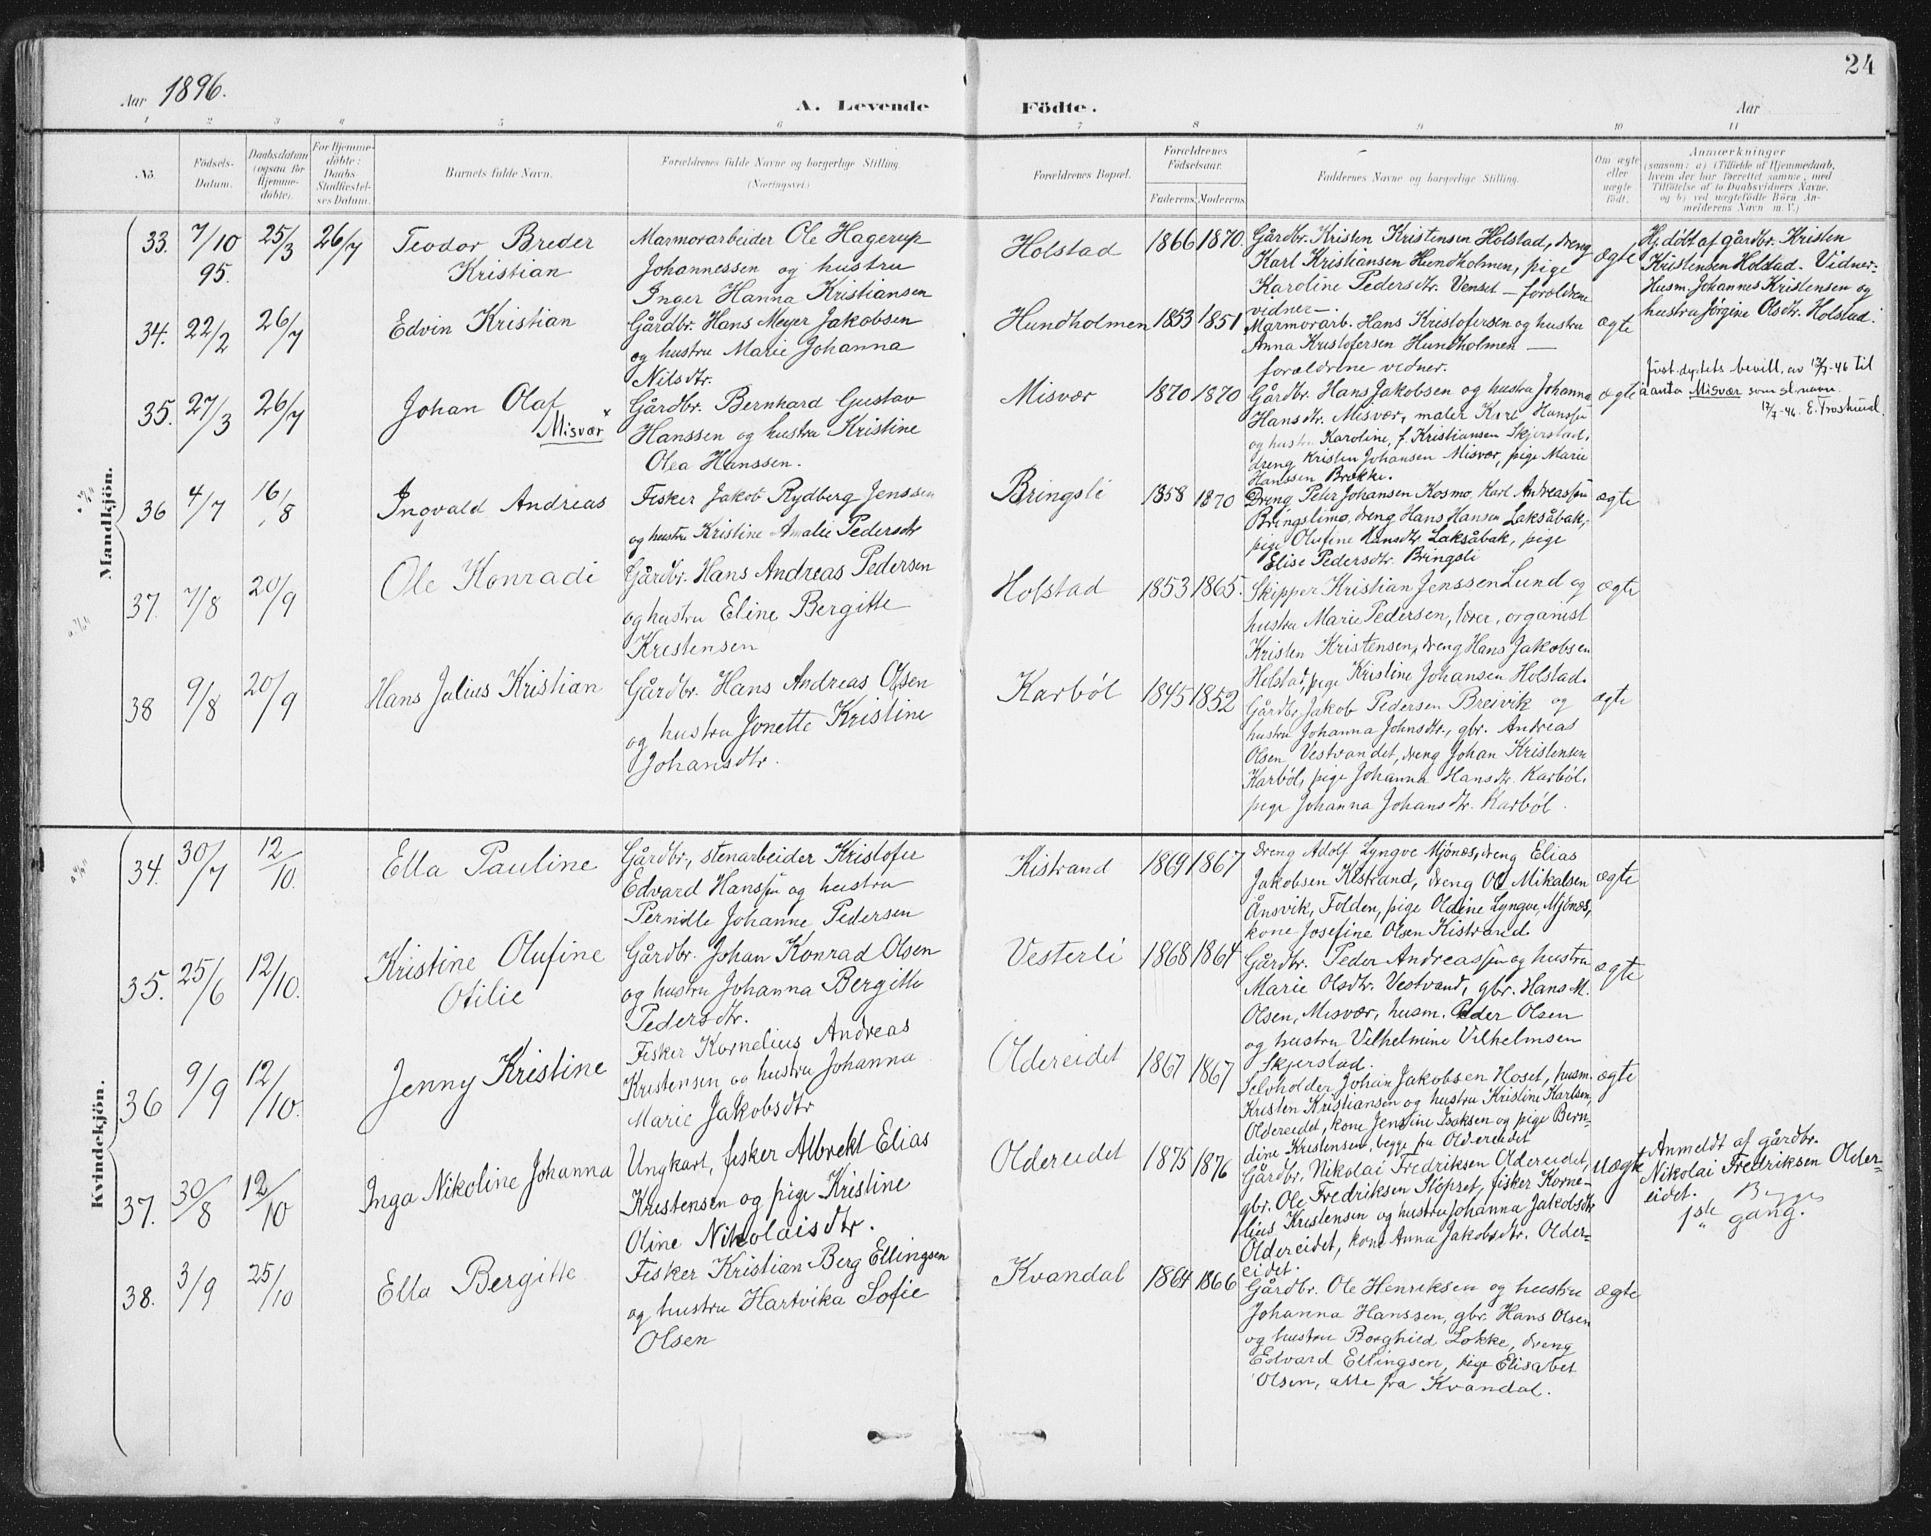 24
Aar 1896.
A. Levende Födte.
Aar
1 2 3 4 5 6 7 8 9 10 11
No.
Födsels-Datum.
Daabsdatum (ogsaa for Hjemmedöbte).
For Hjemmedöbte: Daabs Stadfæstelses Datum.
Barnets fulde Navn.
Forældrenes fulde Navne og borgerlige Stilling. (Næringsvei)
Forældrenes Bopæl.
Forældrenes Födselsaar.
Faderens. Moderens.
Faddernes Navne og borgerlige Stilling.
Om ægte eller uægte födt.
Anmærkninger
(saasom: a) i Tilfælde af Hjemmedaab, hvem der har forrettet samme, med Tilföielse af to Daabsvidners Navne, og b) ved uægtefödte Börn Anmelderens Navn m. V.)
Mandkjön.
33. 7/10 95. 25/3 26/7
Teodor Breder
Kristian
Marmorarbeider Ole Hagerup
Johannessen og hustru
Inger Hanna Kristiansen
Holstad 1866 1870.
Gårdbr. Kristen Kristensen Holstad, dreng
Karl Kristiansen Hundholmen, pige
Karoline Pedersdtr. Venset – forældrene
vidner –
ægte
Hj. døbt af gårdbr. Kristen
Kristensen Holstad. Vidner:
Husm. Johannes Kristensen og
hustru Jørgine Olsdtr. Holstad.
34. 22/2 26/7
Edvin Kristian
Gårdbr. Hans Meyer Jakobsen
og hustru Marie Johanna
Nilsdtr.
Hundholmen 1853 1851
Marmorarb. Hans Kristofersen og hustru
Anna Kristofersen Hundholmen –
forældrene vidner.
ægte
35. 27/3 26/7
Johan Olaf
Misvær x
Gårdbr. Bernhard Gustav
Hanssen og hustru Kristine
Olea Hanssen.
Misvær 1870 1870
Gårdbr. Hans Jakobsen og hustru Johanna
Hansdtr. Misvær, maler Kurt Hanssen
og hustru Karoline, f. Kristiansen Skjerstad,
dreng Kristen Johansen Misvær, pige Marie
Hanssen Brække.
ægte
Just. dptets bevill. av 17/7-46 til
å anta Misvær som sl. navn.
17/7-46. E.
36 4/7 16/8
Ingvald Andreas
Fisker Jakob Rydberg Jenssen
og hustru Kristine Amalie Pedersdtr
Bringsli 1858 1870
Dreng Peter Johansen Kosmo, Karl Andreassen
Bringslimo, dreng Hans Hansen Laksåbak,
pige Olufine Hansdtr. Laksåbak, pige
Elise Pedersdtr. Bringsli
ægte
37. 7/8 20/9
Ole Konradi
Gårdbr. Hans Andreas Pedersen
og hustru Eline Bergitte
Kristensen
Holstad 1853 1865.
Skipper Kristian Jenssen Lund og
hustru Marie Pedersen, lærer, organist
Kristen Kristensen, dreng Hans Jakobsen
Holstad, pige Kristine Johansen Holstad.
ægte
38 9/8 20/9
Hans Julius Kristian
Gårdbr. Hans Andreas Olsen
og hustru Jonette Kristine
Johansdtr.
Karbøl 1845 1852
Gårdbr. Jakob Pedersen Breivik og
hustru Johanna Johnsdtr., gbr. Andreas
Olsen Vestvandet, dreng Johan Kristensen
Karbøl, pige Johanna Hansdtr. Karbøl,
pige Johanna Johansdtr. Karbøl.
ægte
Kvindekjön.
34. 30/7 12/10.
Ella Pauline
Gårdbr., stenarbeider Kristofer
Edvard Hanssen og hustru
Pernille Johanne Pedersen
Kistrand 1869 1867
Dreng Adolf Lyngve Mjønes, dreng Elias
Jakobsen Kistrand, dreng Ole Mikalsen
Ånsvik, Folden, pige Oldine Lyngve, Mjønes,
kone Josefine Olsen Kistrand
ægte
35. 25/6 12/10.
Kristine Olufine
Otilie
Gårdbr. Johan Konrad Olsen
og hustru Johanna Bergitte
Pedersdtr.
Vesterli 1868 1864
Gårdbr. Peder Andreassen og hustru
Marie Olsdtr. Vestvand, gbr. Hans M.
Olsen, Misvær, husm. Peder Olsen
og hustru Vilhelmine Vilhelmsen
Skjerstad.
ægte
36 9/9 12/10.
Jenny Kristine
Fisker Kornelius Andreas
Kristensen og hustru Johanna
Marie Jakobsdtr
Oldereidet 1867 1867
Selvholder Johan Jakobsen Hoset, husm.
Kristen Kristiansen og hustru Kristine Karlsen,
Oldereidet, kone Jenstine Isaksen og pige Bern-
dine Kristensen, begge fra Oldereidet
ægte
37. 30/8 12/10
Inga Nikoline Johanna
Ungkarl, fisker Albrekt Elias
Kristensen og pige Kristine
Oline Nikolaisdtr.
Oldereidet 1875 1876
Gårdbr. Nikolai Fredriksen Oldereidet,
gbr. Ole Fredriksen Støpset, fisker Korne-
lius Kristensen og hustru Johanna Jakobsdtr
Oldereidet, kone Anna Jakobsdtr. Older-
eidet.
uægte
Anmeldt af gårdbr.
Nikolai Fredriksen Older-
eidet. Begges
1ste gang.
38. 3/9 25/10
Ella Bergitte
Fisker Kristian Berg Ellingsen
og hustru Hartvika Sofie
Olsen
Kvandal 1864 1866
Gårdbr. Ole Henriksen og hustru
Johanna Hanssen, gbr. Hans Olsen
og hustru Borghild Løkke, dreng
Edvard Ellingsen, pige Elisabet
Olsen, alle fra Kvandal.
ægte